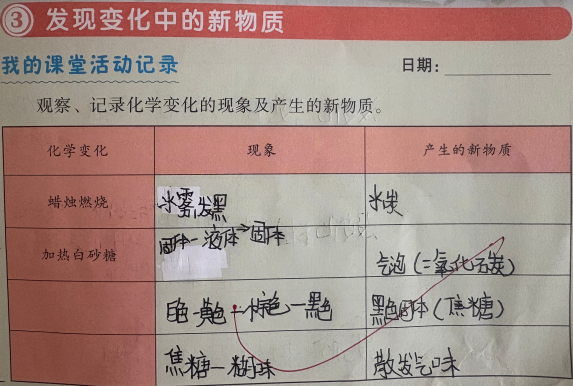 3 发现变化中的新物质
我的课堂活动记录
日期：
观察、记录化学变化的现象及产生的新物质。
化学变化 现象 产生的新物质
蜡烛燃烧 水雾发黑 水炭
加热白砂糖 固体－液体→固体 气泡(二氧化石炭)
白色－黄色－棕色－黑色 黑色固体(焦糖)
焦糖－糊味 散发气味